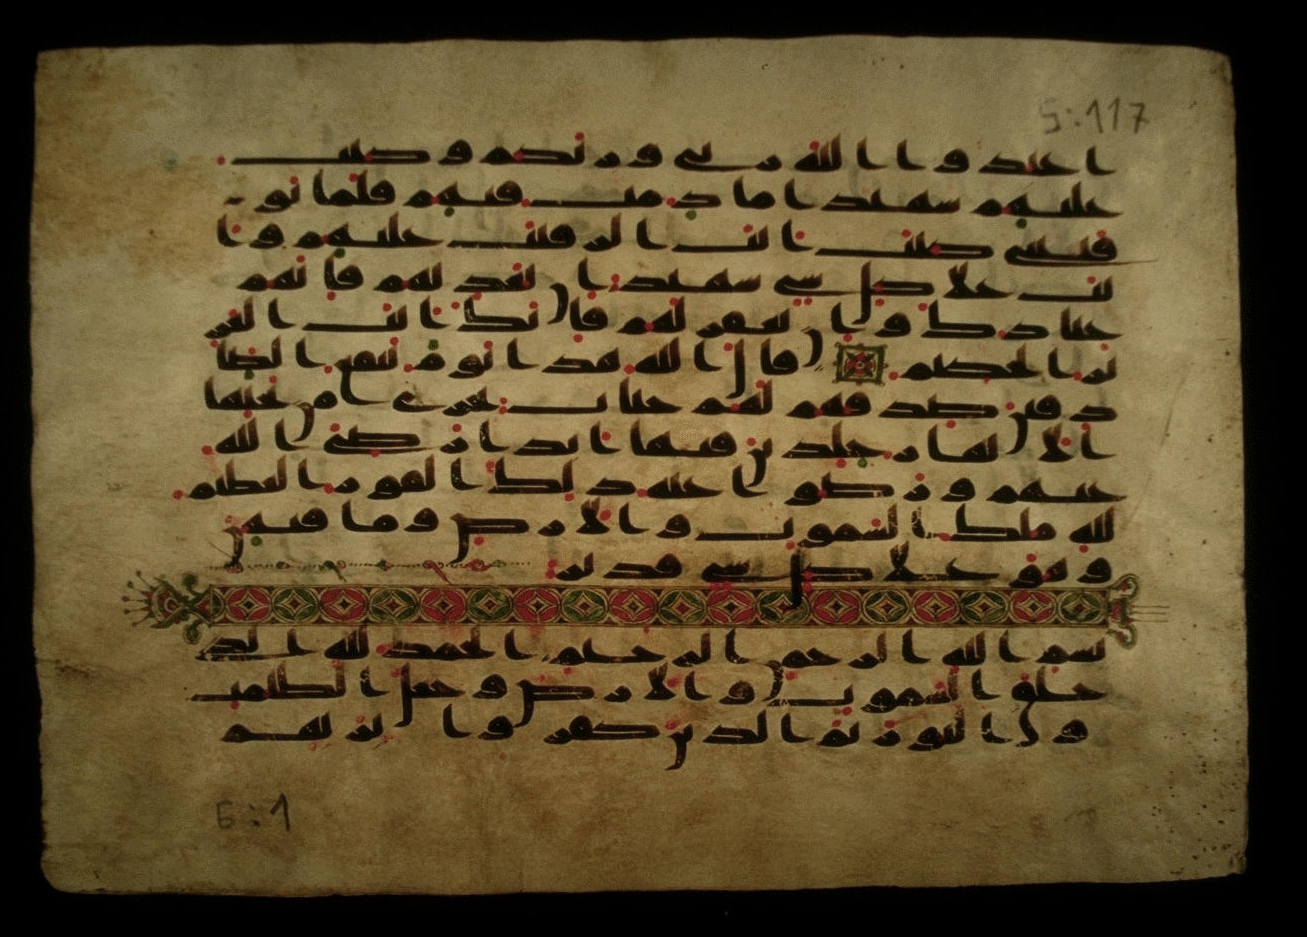 5:117
اعبدوا الله ربي وربكم وكنت
عليهم شهيدا ما دمت فيهم فلما تو
فيتني كنت انت الرقيب عليهم وا
نت علا كل شي شهيد ان تعذبهم فانهم
عبادك وان تغفر لهم فانك انت العز
يز الحكيم قال الله هذا يوم ينفع الصا
دقين صدقهم لهم جنات تجري من تحتها
الانهار خلدين فيها ابدا رضي الله
عنهم ورضوا عنه ذلك الفوز العظيم
لله ملك السموت والارض وما فيهن
وهو علا كل شي قدير
بسم الله الرحمن الرحيم الحمد لله الذي
خلق السموت والارض وجعل الظلمت
والنور ثم الذين كفروا بربهم
6:1